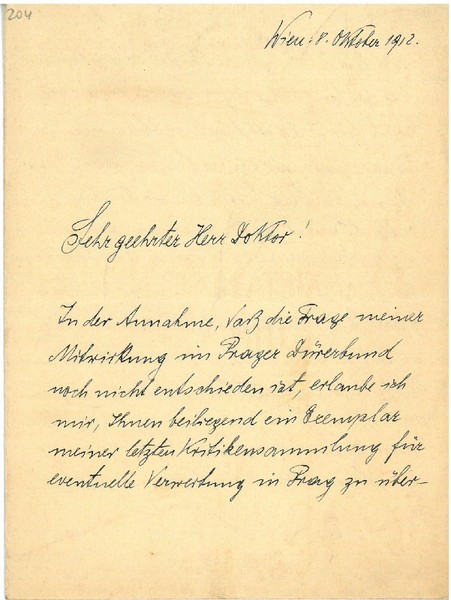 204
Wien, 8. Oktober 1912.
Sehr geehrter Herr Doktor!
In der Annahme, daß die Frage meiner
Mitwirkung im Prager Dürerbund
noch nicht entschieden ist, erlaube ich
mir, Ihnen beiliegend ein Exemplar
meiner letzten Kritikensammlung für
eventuelle Verwertung in Prag zu über-